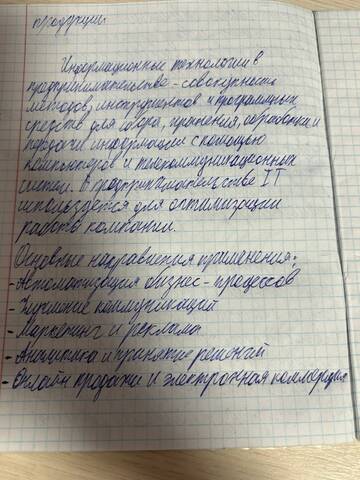 продукции.
Информационные технологии в
предпринимательстве - совокупность
методов, инструментов и программных
средств для сбора, хранения, обработки и
передачи информации с помощью
компьютеров и телекоммуникационных
систем. В предпринимательстве IT
используется для оптимизации
работы компании.
Основные направления применения:
- Автоматизация бизнес-процессов
- Улучшение коммуникаций
- Маркетинг и реклама
- Аналитика и принятие решений
- Онлайн продажи и электронная коммерция